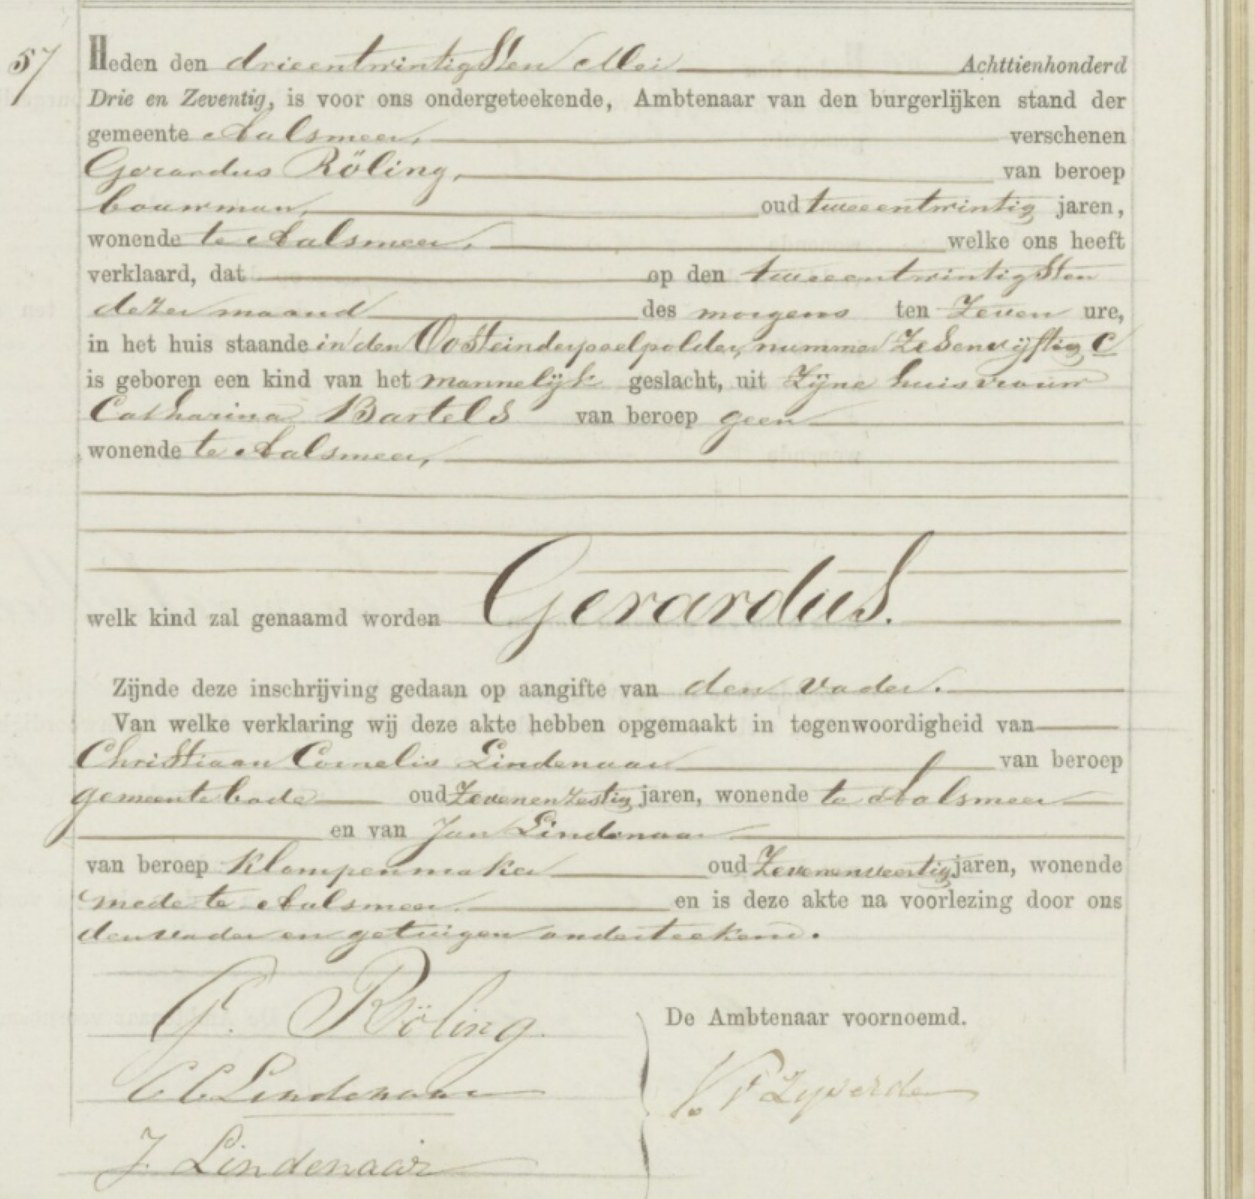 57
Heden den drieentwintigsten Mei Achttienhonderd
Drie en Zeventig, is voor ons ondergeteekende, Ambtenaar van den burgerlijken stand der
gemeente Aalsmeer, verschenen
Gerardus Röling, van beroep
bouwman, oud tweeentwintig jaren,
wonende te Aalsmeer, welke ons heeft
verklaard, dat op den tweeentwintigsten
dezer maand des morgens ten Zeven ure,
in het huis staande in den Oosteinderpoelpolder, nummer Zesenvijftig C
is geboren een kind van het mannelijk geslacht, uit Zijne huisvrouw
Catharina Bartels van beroep geen
wonende te Aalsmeer,
welk kind zal genaamd worden Gerardus.
Zijnde deze inschrijving gedaan op aangifte van den vader.
Van welke verklaring wij deze akte hebben opgemaakt in tegenwoordigheid van
Christiaan Cornelis Lindenaar van beroep
gemeentebode oud Zevenenzestig jaren, wonende te Aalsmeer
en van Jan Lindenaar
van beroep Klompenmaker oud Zevenenveertig jaren, wonende
mede te Aalsmeer en is deze akte na voorlezing door ons
den vader en getuigen onderteekend.
G. Röling.
De Ambtenaar voornoemd.
C C Lindenaar
J. Lindenaar